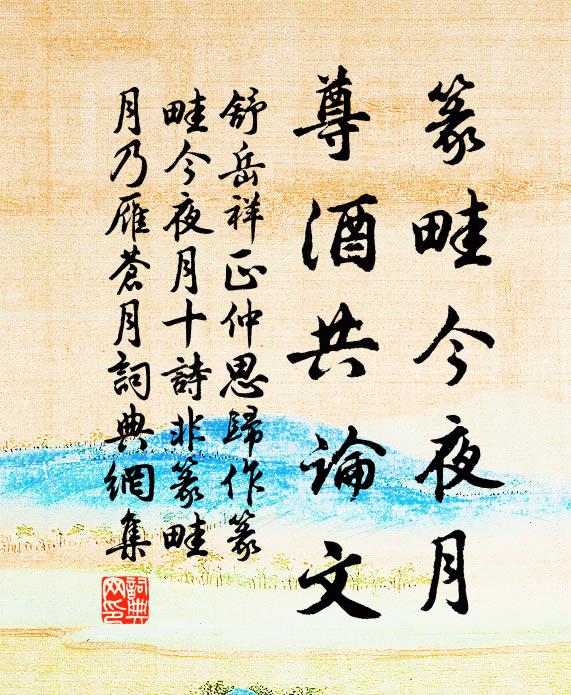 篆畦今夜月
尊酒共論文
舒岳祥正仲思歸作篆
畦今夜月十詩非篆畦
月乃雁蒼月詞典網集
詞典
网印